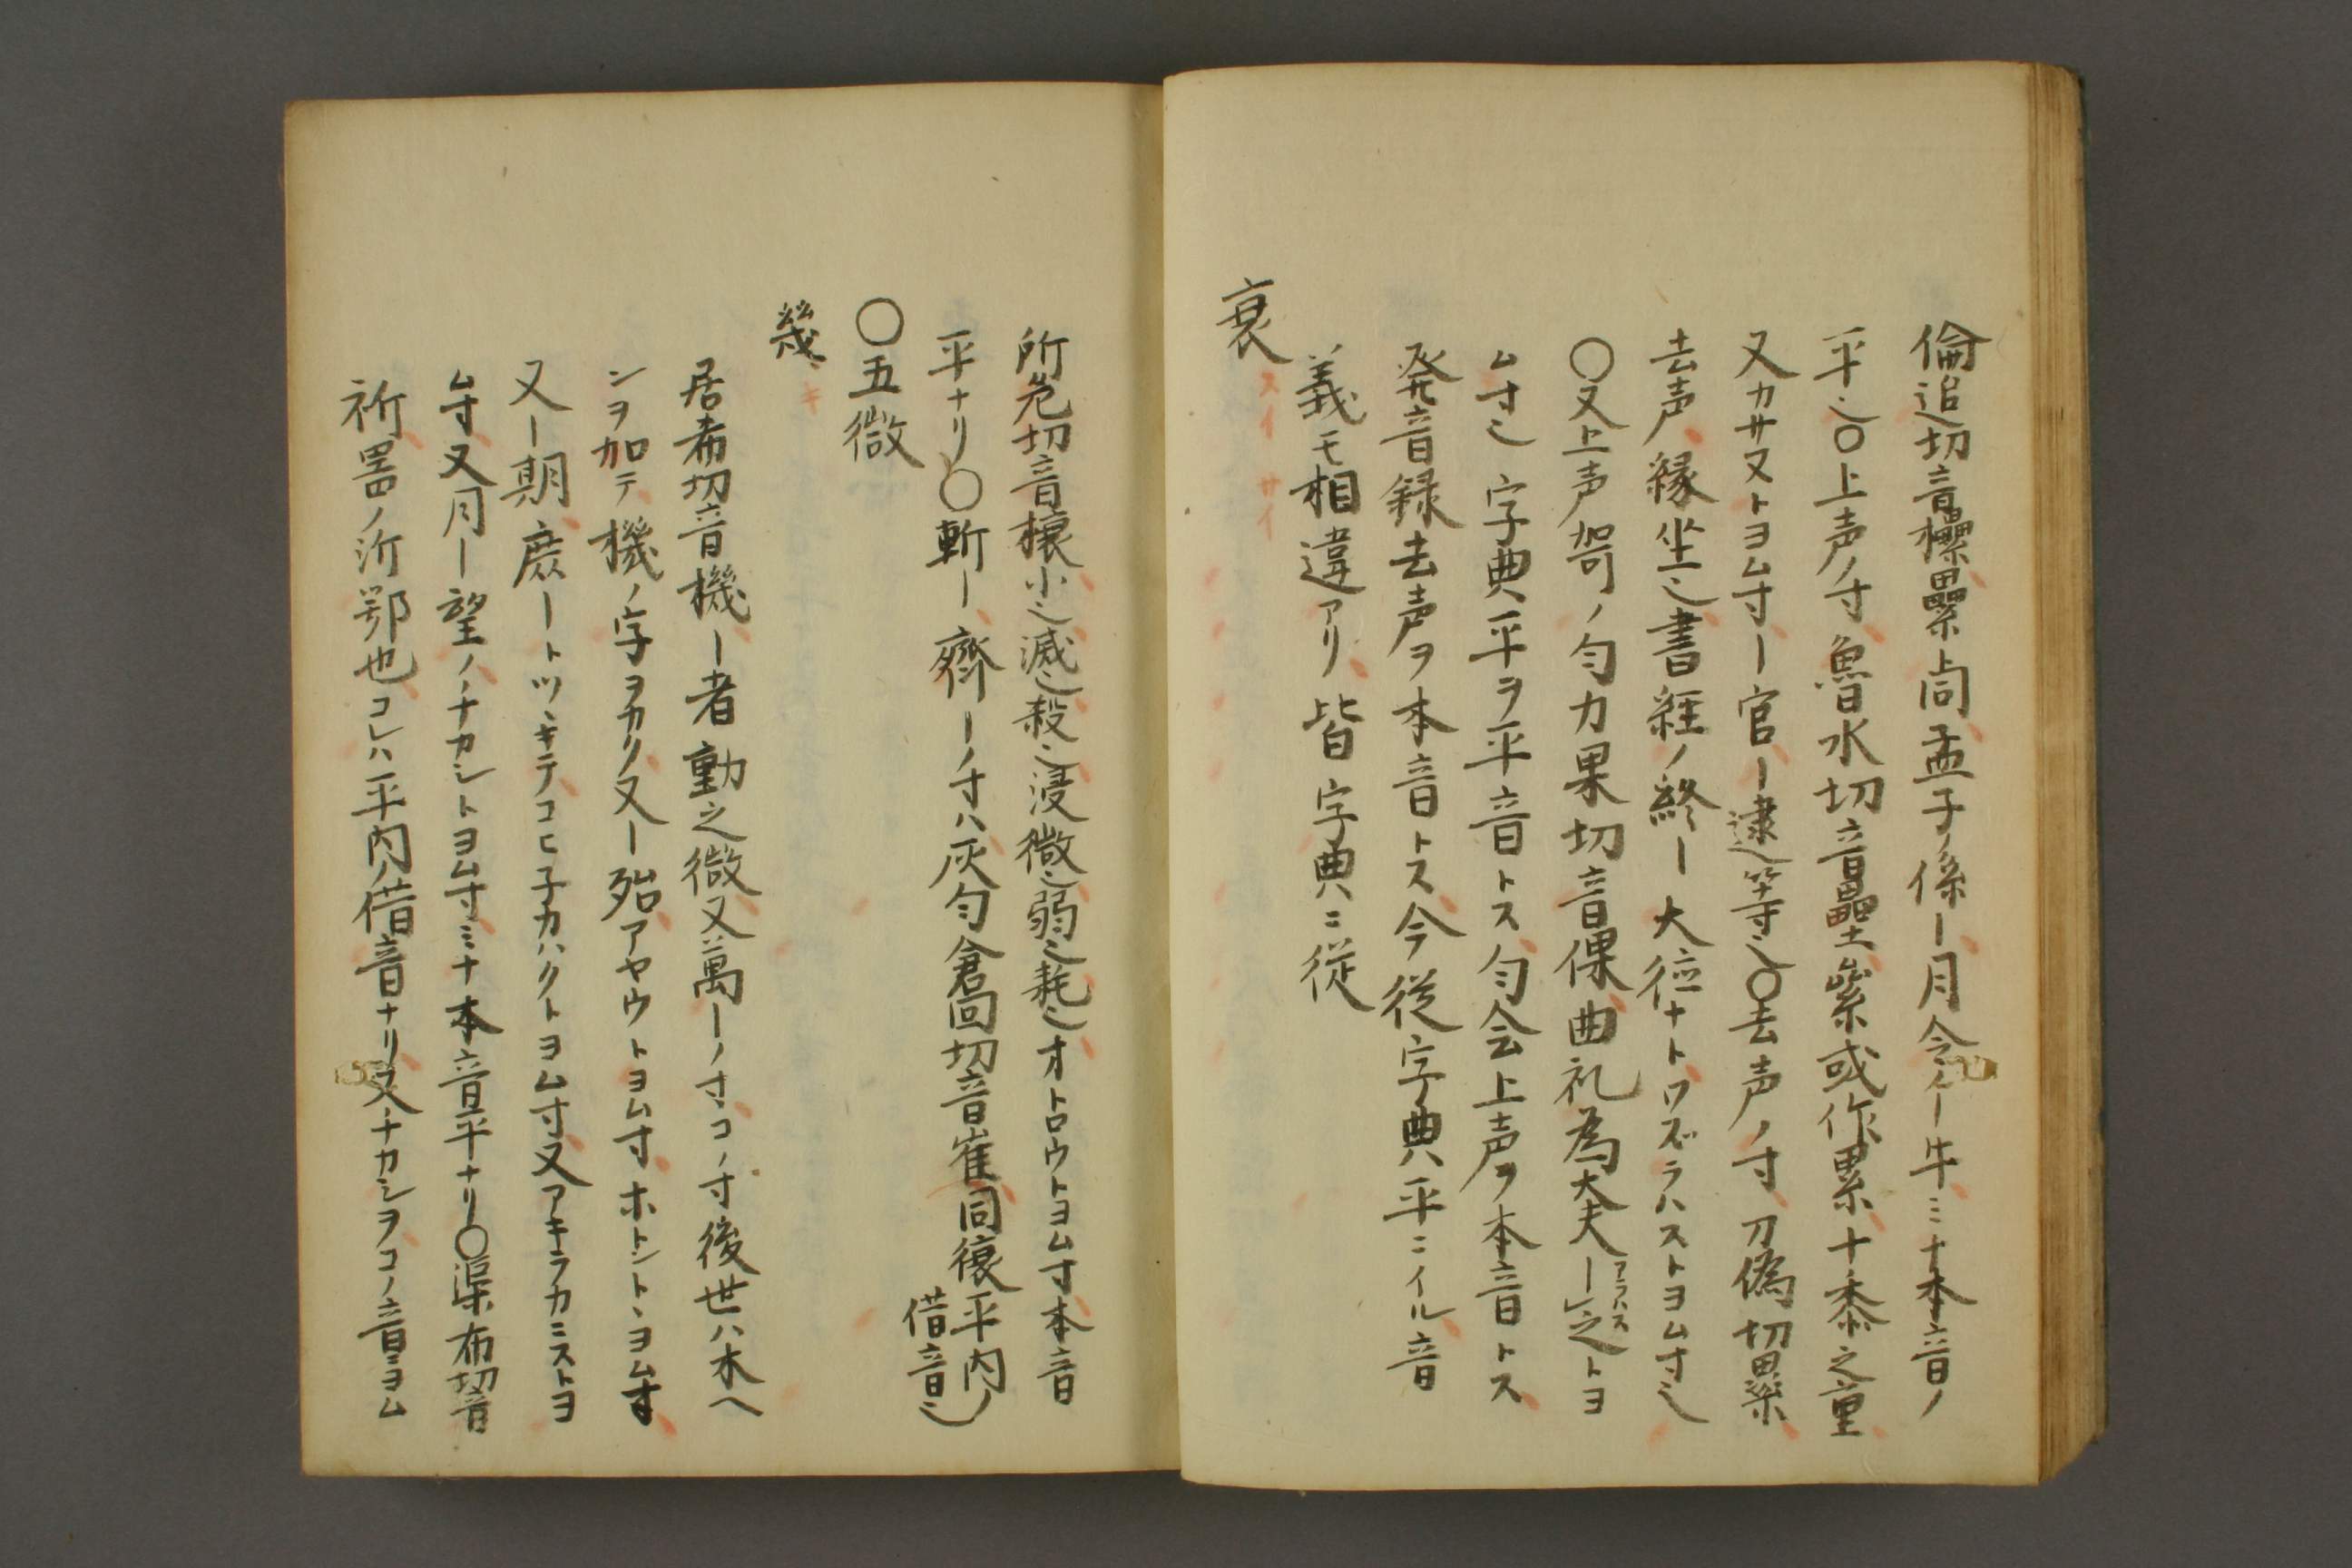 倫追切音欙纍同孟子ノ係ー月令ノー牛ミナ本音ノ
平也〇上声ノ寸魯水切音壘絫或作累十黍之重
又カサヌトヨム寸ー官ー逮等也〇去声ノ寸力偽切纍
去声縁坐也書経ノ終ー大徳ナトワズラハストヨム寸也
〇又上声哿ノ匀力果切音倮曲礼為大夫ー之トヨ
アラハス
ム寸也字典平ヲ平音トス匀会上声ヲ本音トス
発音録去声ヲ本音トス今従字典ハ平ニイル音
義モ相違アリ皆字典ニ従
衰 スイ サイ
所危切音榱小也減也殺也浸微也弱也耗也オトロウトヨム寸本音
平ナリ〇斬ー齊ーノ寸ハ灰匀倉回切音崔同縗平内ノ
借音也
〇五微
幾 キ
居希切音機ー者動之微又萬ーノ寸コノ寸後世ハ木ヘ
ンヲ加テ機ノ字ヲカリ又ー殆アヤウトヨム寸ホトンドヽヨム寸
又ー期庶ートツヽキテコヒ子カハクトヨム寸又アキラカニストヨ
ム寸又月ー望ノナカシトヨム寸ミナ本音平ナリ〇渠希切音
祈器ノ沂鄂也コレハ平内ノ借音ナリ又ナカシヲコノ音ヨム